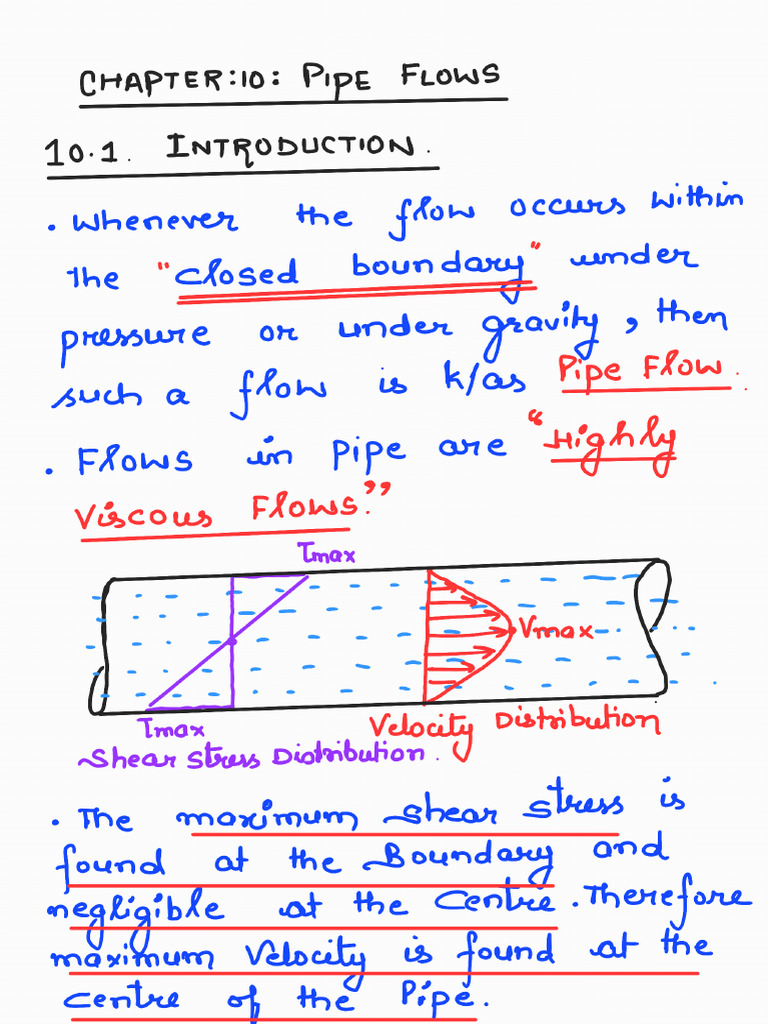 CHAPTER:10: PIPE FLOWS
10.1. INTRODUCTION.
• Whenever the flow occurs within
the "closed boundary" under
pressure or under gravity, then
such a flow is k/as Pipe Flow.
• Flows in pipe are "Highly
Viscous Flows."
τmax
Vmax
τmax
Velocity Distribution
Shear Stress Distribution.
• The maximum shear stress is
found at the Boundary and
negligible at the Centre. Therefore
maximum Velocity is found at the
Centre of the Pipe.